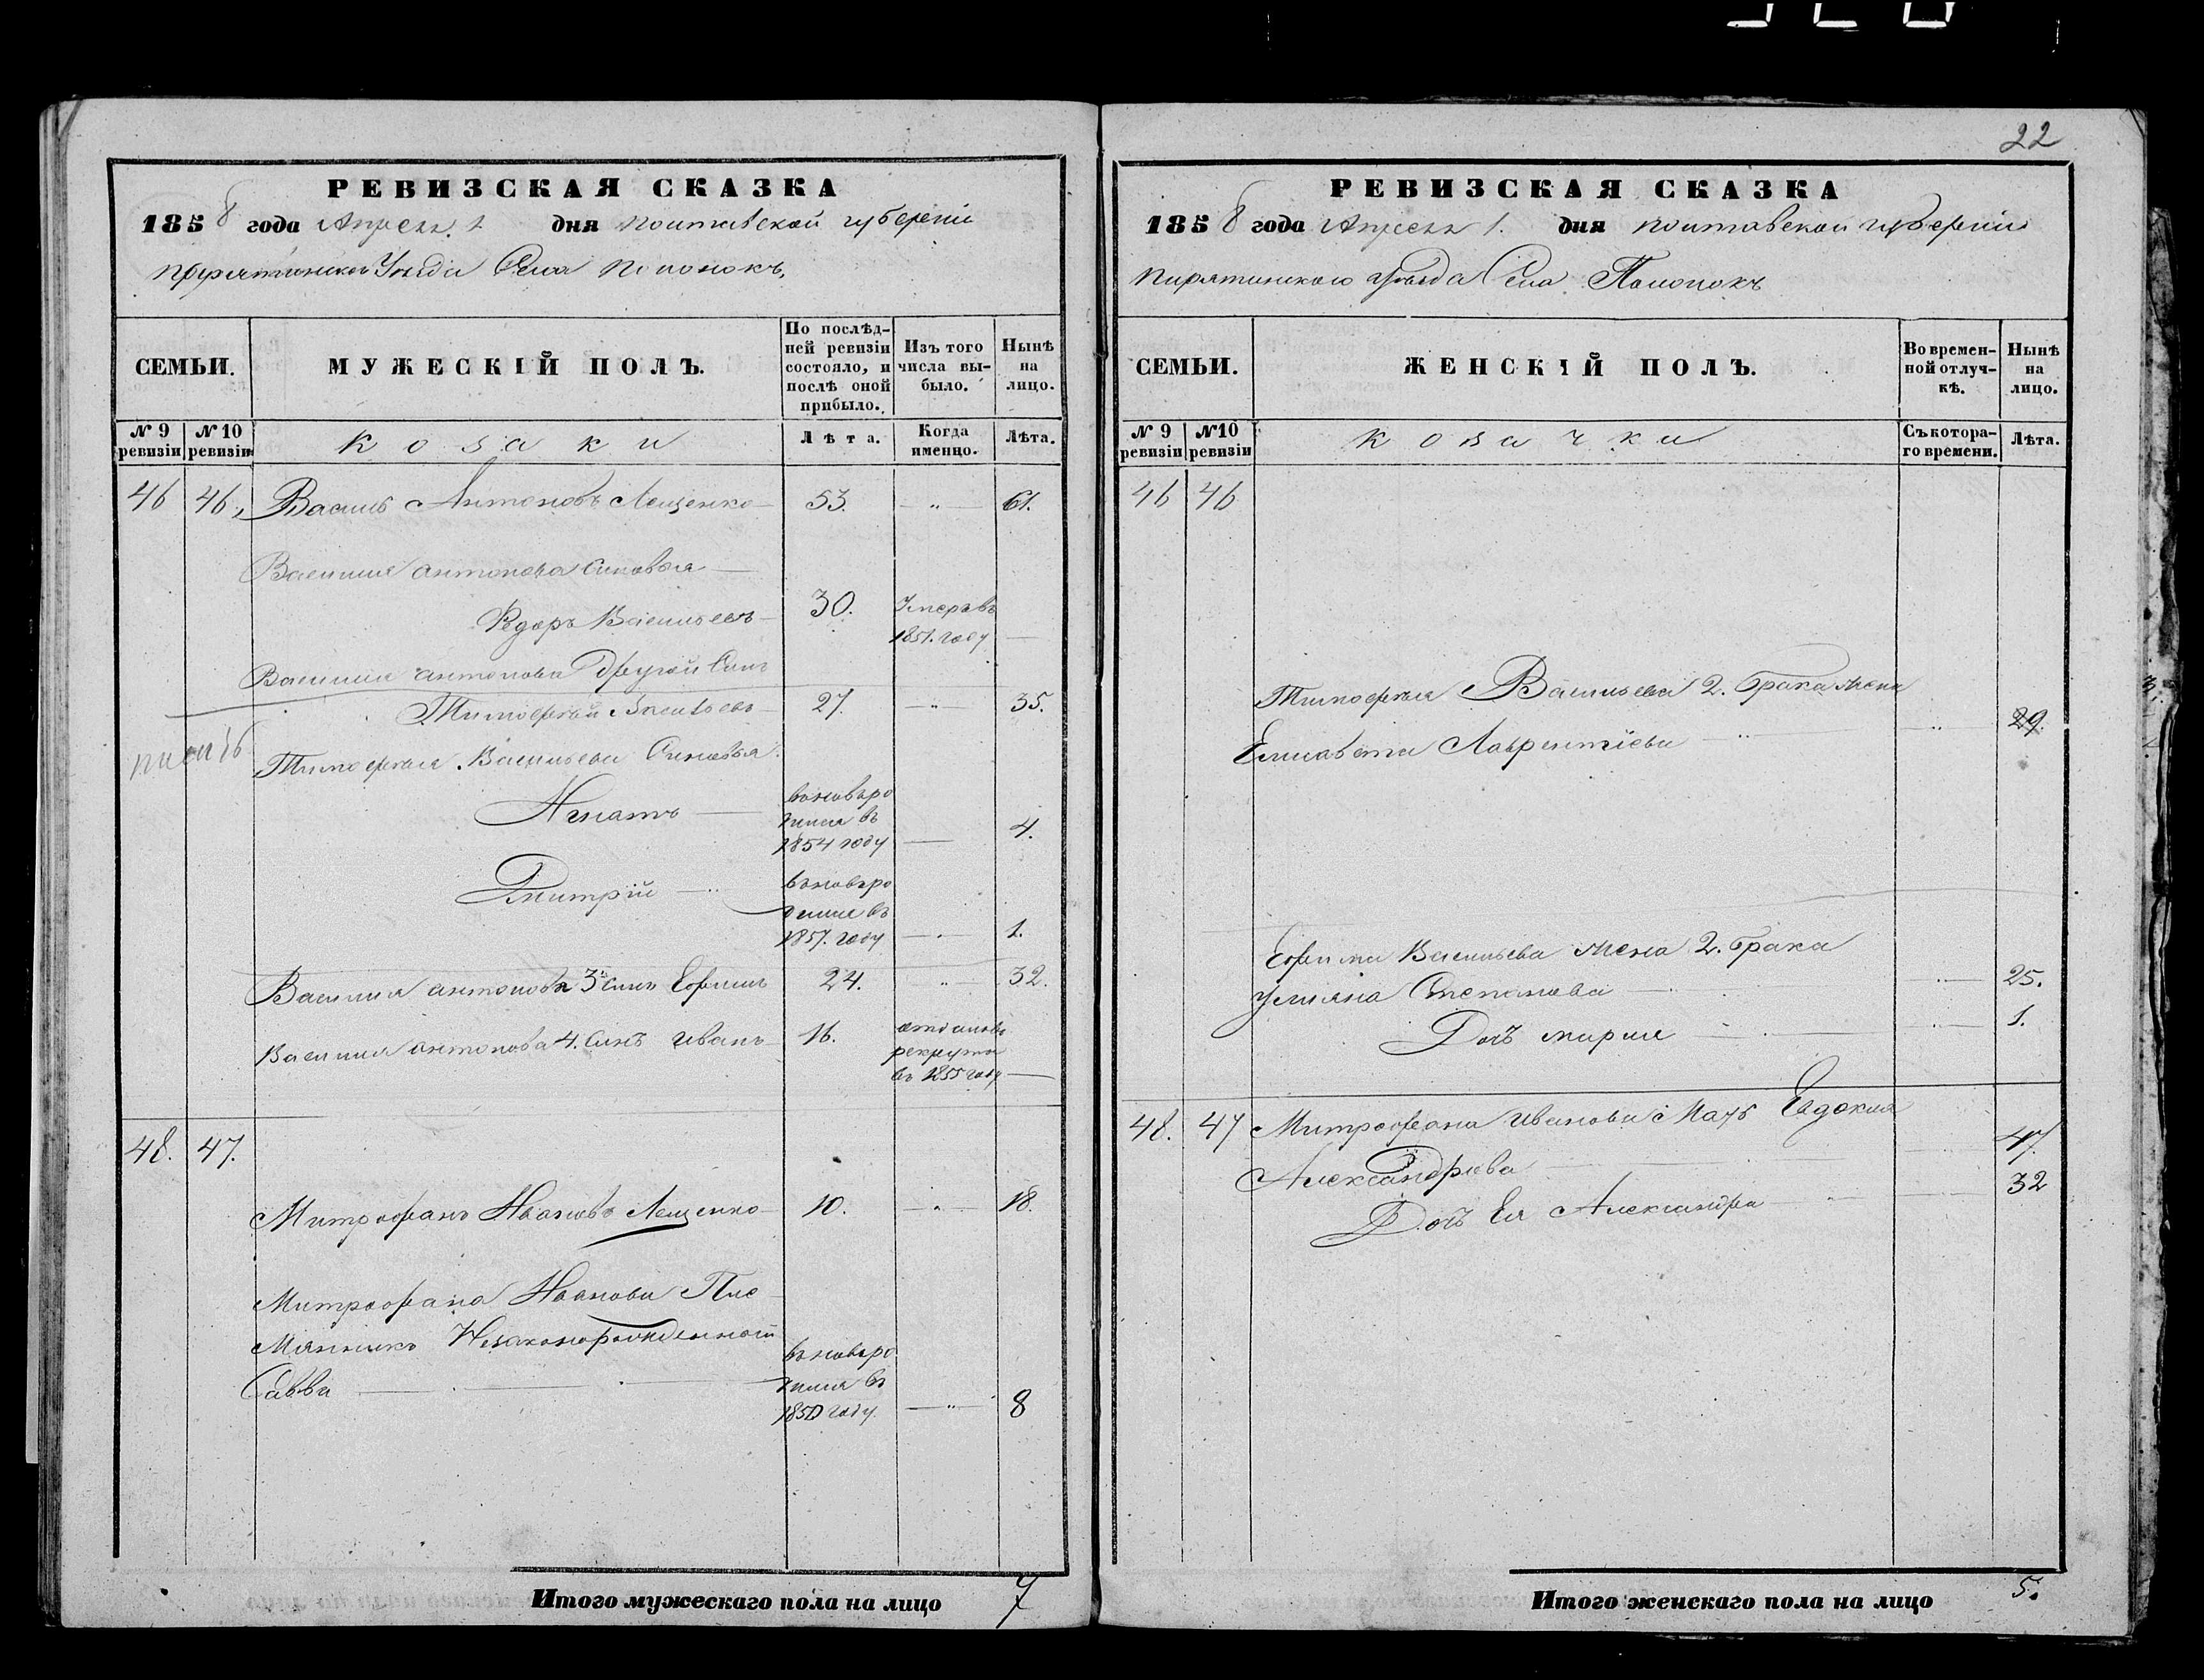 РЕВИЗСКАЯ СКАЗКА
1858 года Апреля 1 дня Полтавской губерніи
Пирятинского Уезда Села Поповокъ,
СЕМЬИ.
МУЖЕСКІЙ ПОЛЪ.
По послѣд-
ней ревизіи
состояло, и
послѣ оной
прибыло.
Изъ того
числа вы-
было.
Нынѣ
на
лицо.
№ 9
ревизіи
№ 10
ревизіи
Козаки
Лѣта.
Когда
именно.
Лѣта.
46 46, Василь Антоновъ Лещенко 53. — „ — 61.
Василия антонова синовья —
Федоръ Васильевъ 30. Умеръ въ
1851. году —
Василия антонова Другой Синъ
Тимофей Васильевъ 27. — „ — 35.
Тимофея Васильева Синовья
Игнатъ — вновьро
дился въ
1854 году — 4.
Дмитрій — вновьро
дился въ
1857. году — 1.
Василия антонова 3й синъ Ефимъ 24. — „ — 32.
Василия антонова 4. Синъ иванъ 16. отданъ въ
рекруты
въ 1855 году —
48. 47.
Митрофанъ Ивановъ Лещенко 10. — „ — 18.
Митрофана Иванова Пле
мянникъ Незаконорожденной
Савва — вновьро
дился въ
1850 году. — „ — 8
Итого мужескаго пола на лицо 7
22
РЕВИЗСКАЯ СКАЗКА
1858 года Апреля 1. дня Полтавской губерніи
Пирятинского уезда Села Поповокъ
СЕМЬИ.
ЖЕНСКІЙ ПОЛЪ.
Во времен-
ной отлуч-
кѣ.
Нынѣ
на
лицо.
№ 9
ревизіи
№ 10
ревизіи
Козачки
Съ котора-
го времени.
Лѣта.
46 46
Тимофея Васильева 2. брака жена
Елисавета Лаврентіева — „ — 29.
Ефима Васильева жена 2. брака
Улияна Степанова — 25.
Дочь мария — 1.
48. 47 Митрофана иванова Мать Евдокия
Александрова 47.
Дочь Ея Александра 32
Итого женскаго пола на лицо 5.